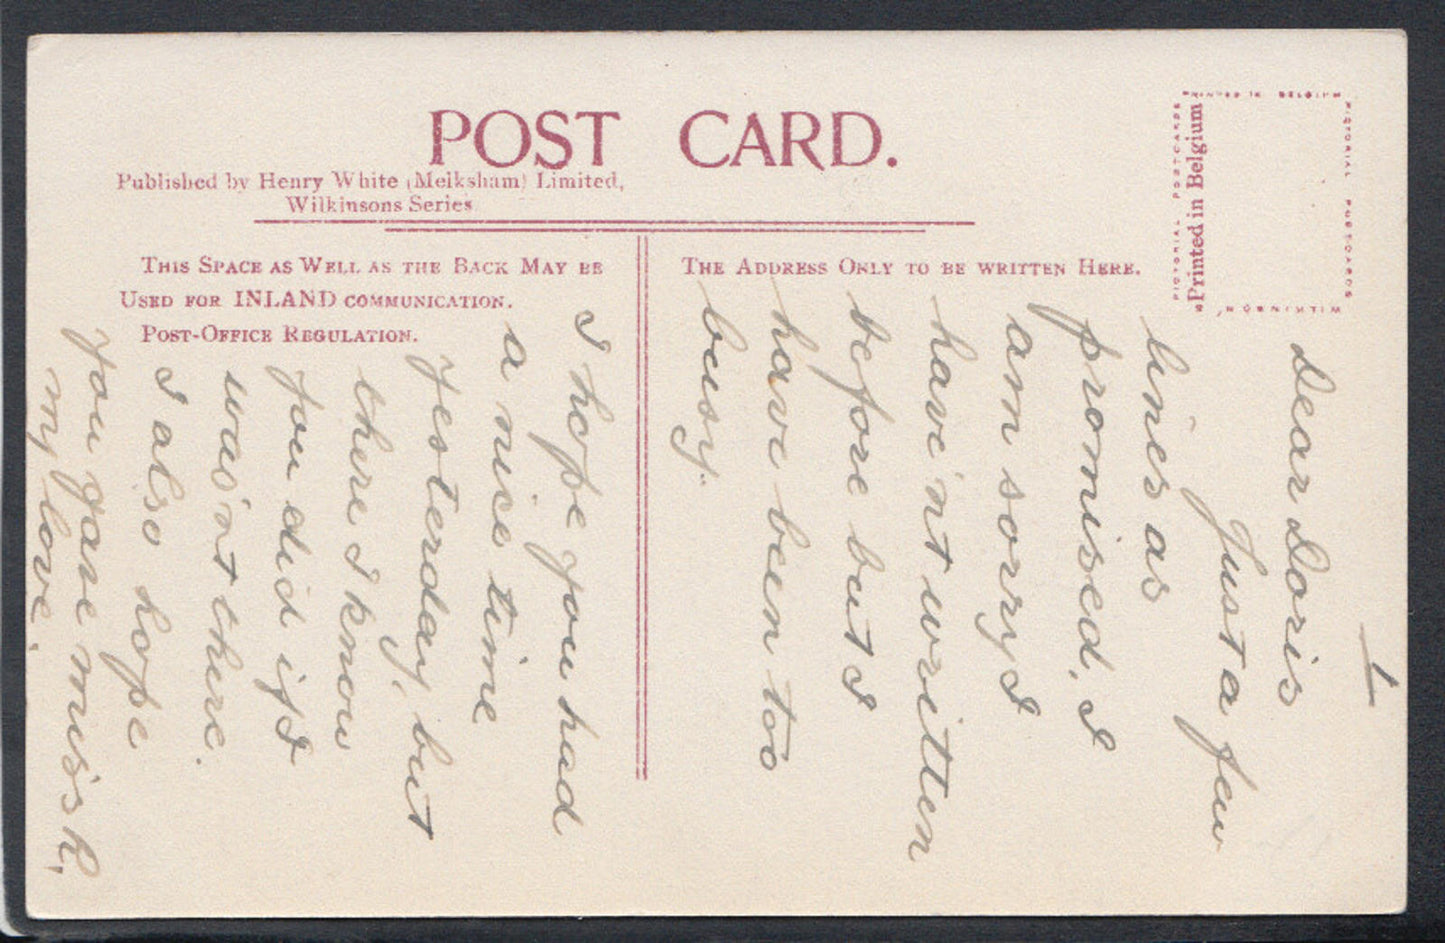 POST CARD.
Published by Henry White (Melksham) Limited,
Wilkinsons Series
THIS SPACE AS WELL AS THE BACK MAY BE
USED FOR INLAND COMMUNICATION.
POST-OFFICE REGULATION.
THE ADDRESS ONLY TO BE WRITTEN HERE.
PRINTED IN BELGIUM
PICTORIAL POSTCARDS
WILKINSON
PICTORIAL POSTCARDS
Printed in Belgium
1
Dear Doris
Just a few
lines as
promised, I
am sorry I
have'nt written
before but I
have been too
busy.
I hope you had
a nice time
yesterday, but
there I know
you did if I
was'nt there.
I also hope
you gave mis's R,
my love.